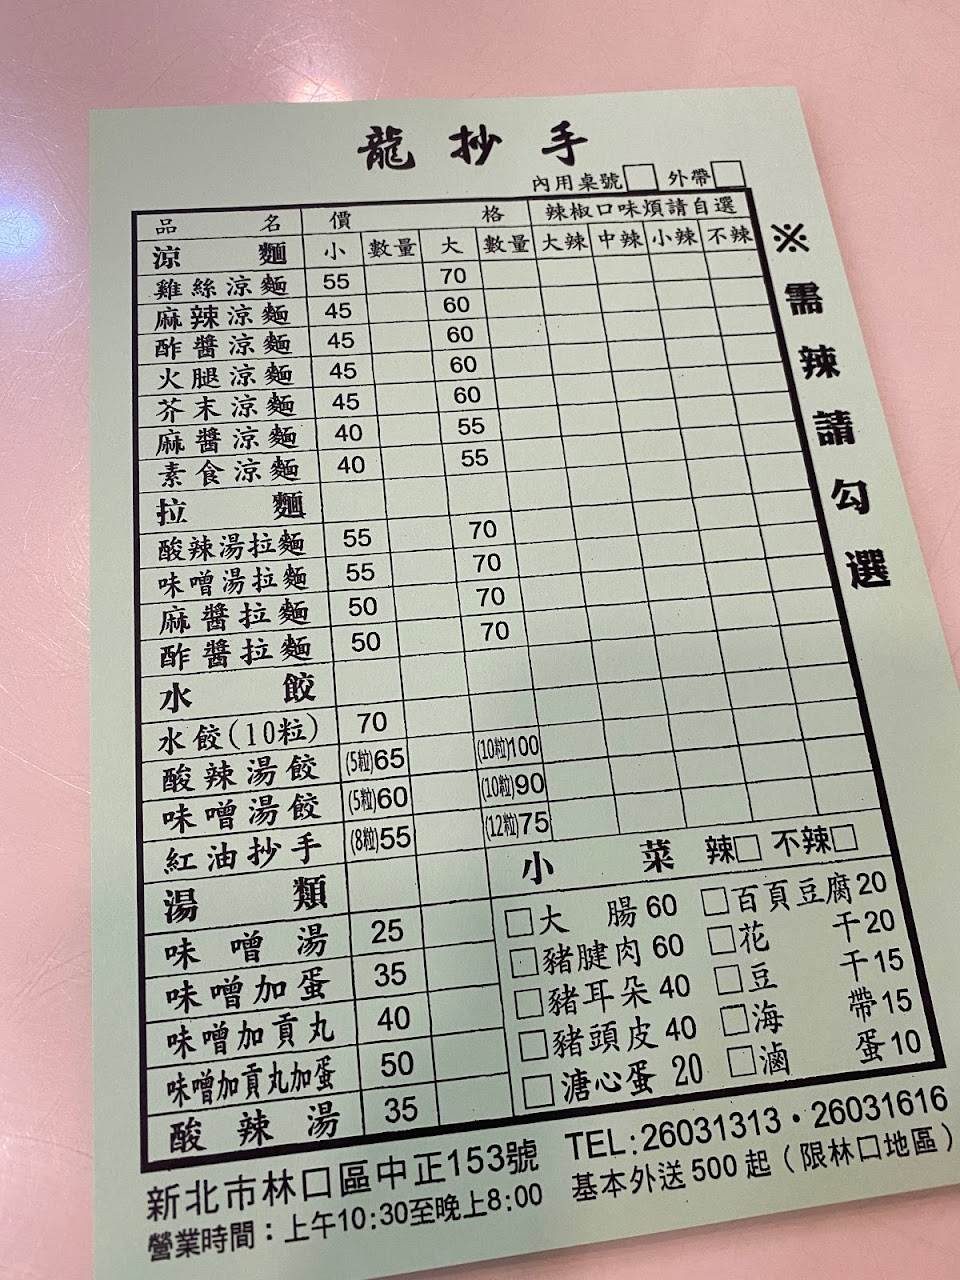 龍抄手
內用桌號□ 外帶□
品名 價格 辣椒口味煩請自選
涼麵 小 數量 大 數量 大辣 中辣 小辣 不辣
雞絲涼麵 55 70
麻辣涼麵 45 60
酢醬涼麵 45 60
火腿涼麵 45 60
芥末涼麵 45 60
麻醬涼麵 40 55
素食涼麵 40 55
拉麵
酸辣湯拉麵 55 70
味噌湯拉麵 55 70
麻醬拉麵 50 70
酢醬拉麵 50 70
水餃
水餃(10粒) 70
酸辣湯餃 (5粒)65 (10粒)100
味噌湯餃 (5粒)60 (10粒)90
紅油抄手 (8粒)55 (12粒)75
湯類
味噌湯 25
味噌加蛋 35
味噌加貢丸 40
味噌加貢丸加蛋 50
酸辣湯 35
小菜 辣□ 不辣□
□大腸60 □百頁豆腐20
□豬腱肉60 □花干20
□豬耳朵40 □豆干15
□豬頭皮40 □海帶15
□溏心蛋20 □滷蛋10
※需辣請勾選
新北市林口區中正153號 TEL:26031313・26031616
營業時間：上午10:30至晚上8:00 基本外送500起（限林口地區）